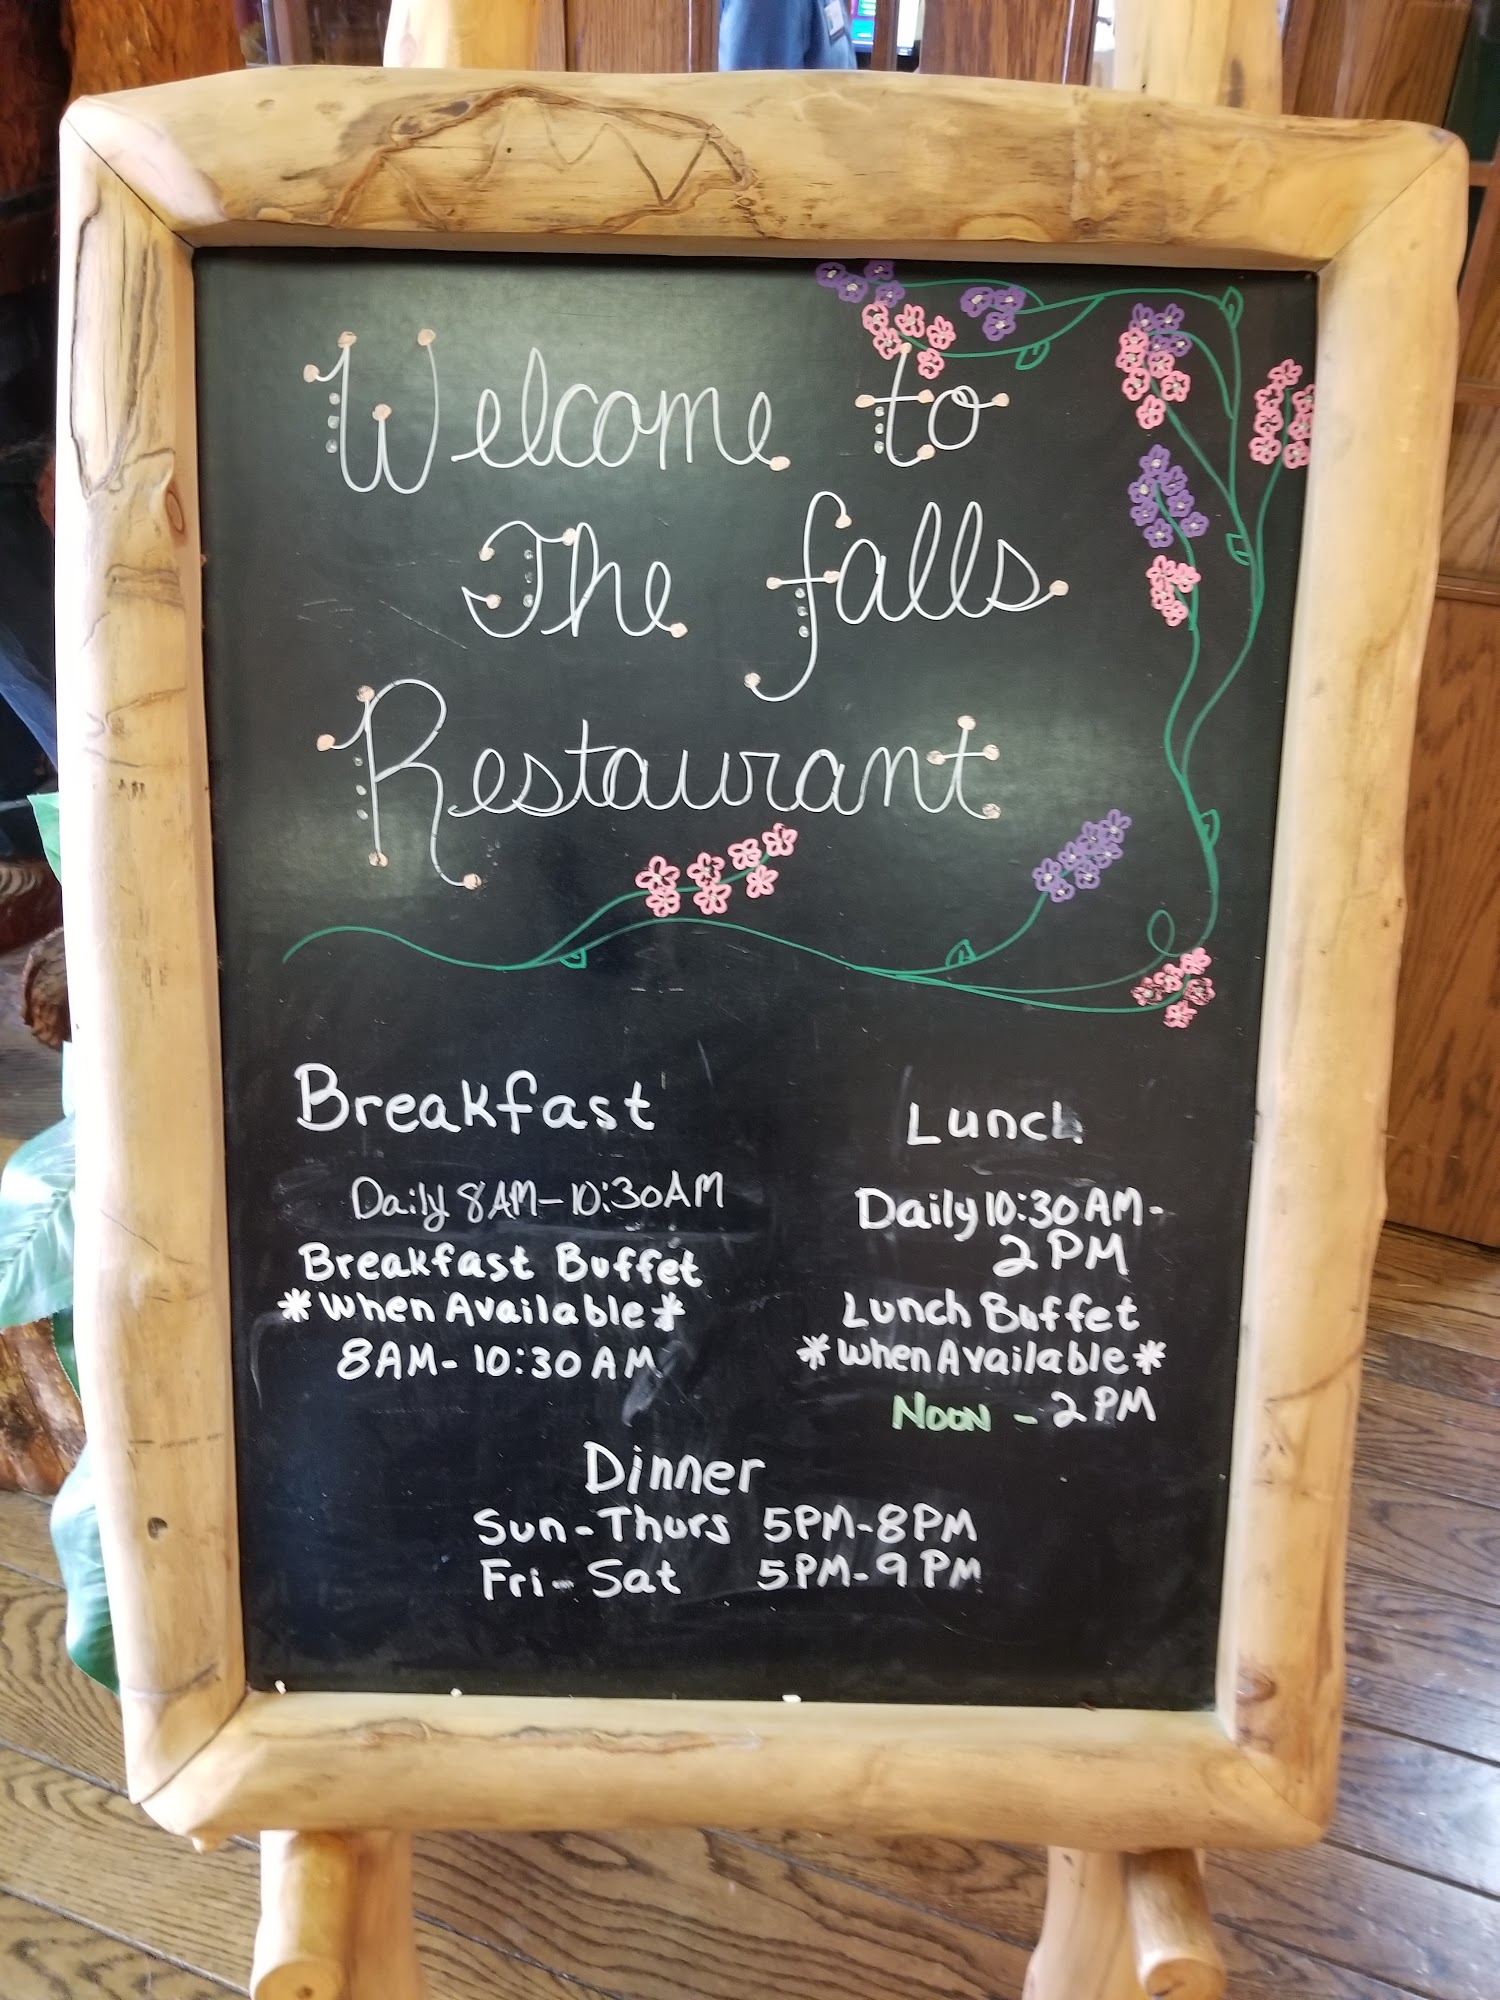 Welcome to
The falls
Restaurant
Breakfast
Daily 8AM-10:30AM
Breakfast Buffet
*When Available*
8AM-10:30AM
Lunch
Daily 10:30AM-
2PM
Lunch Buffet
*When Available*
NOON - 2PM
Dinner
Sun-Thurs 5PM-8PM
Fri-Sat 5PM-9PM